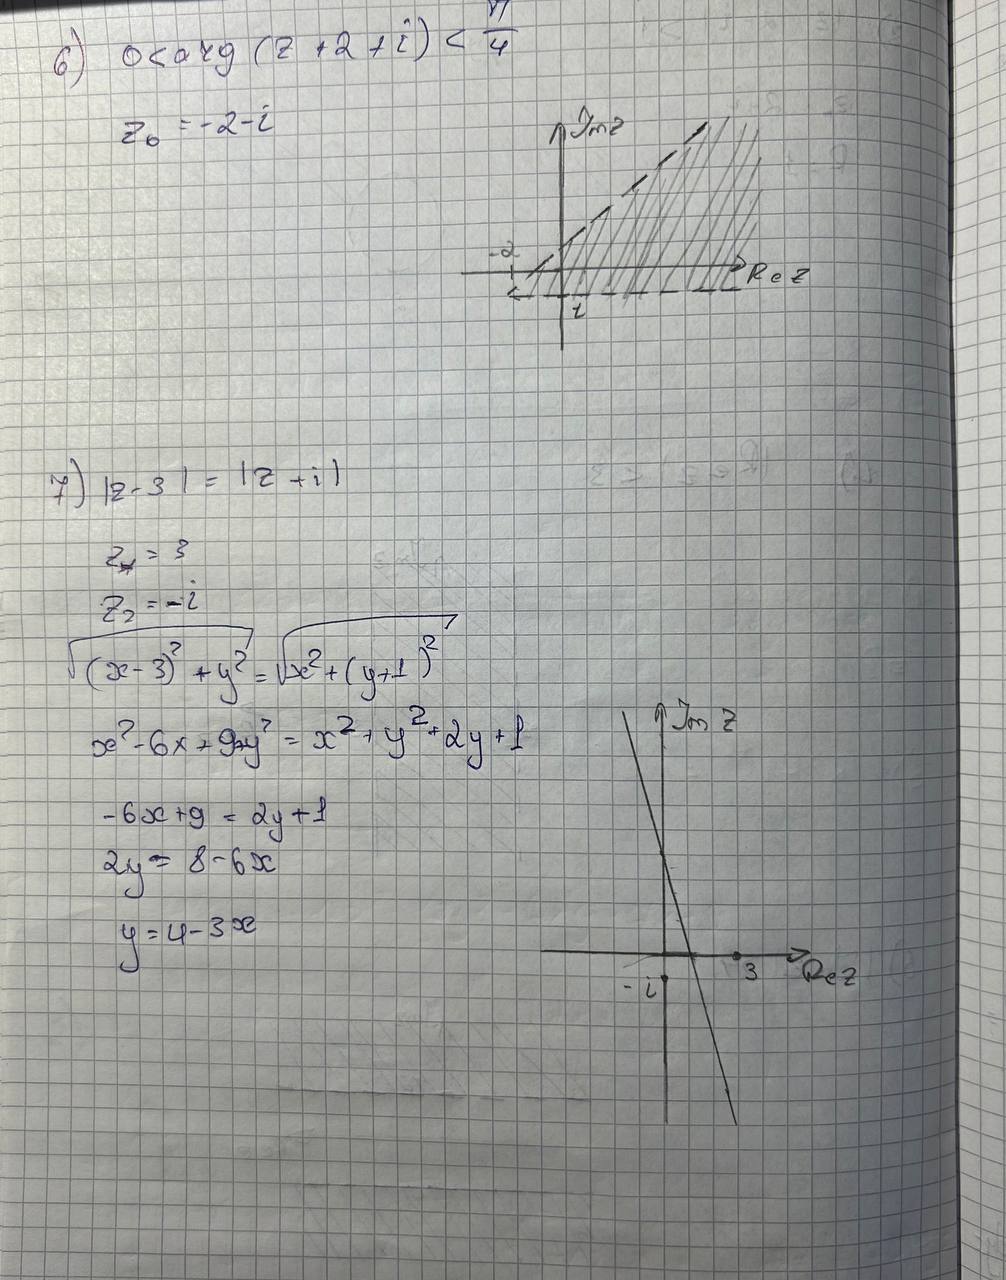 6) 0 < arg (z + 2 + i) < π/4
z₀ = -2 - i
Im z
-2
Re z
i
7) |z - 3| = |z + i|
z₁ = 3
z₂ = -i
√((x-3)² + y²) = √(x² + (y+1)²)
x² - 6x + 9 + y² = x² + y² + 2y + 1
-6x + 9 = 2y + 1
2y = 8 - 6x
y = 4 - 3x
Im z
3
Re z
-i